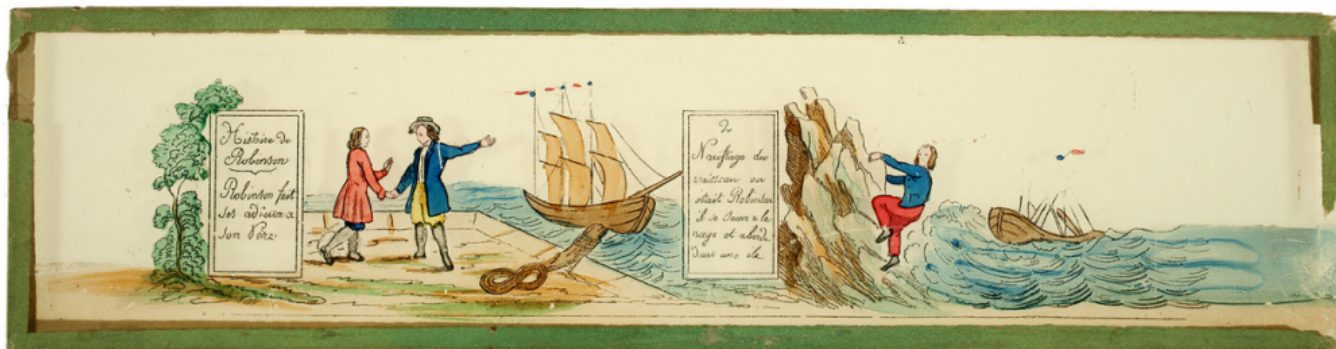 Histoire de
Robinson
Robinson fait
ses adieux a
son Père
2
Naufrage du
vaisseau ou
était Robinson
il se sauve a la
nage et aborde
dans une ile